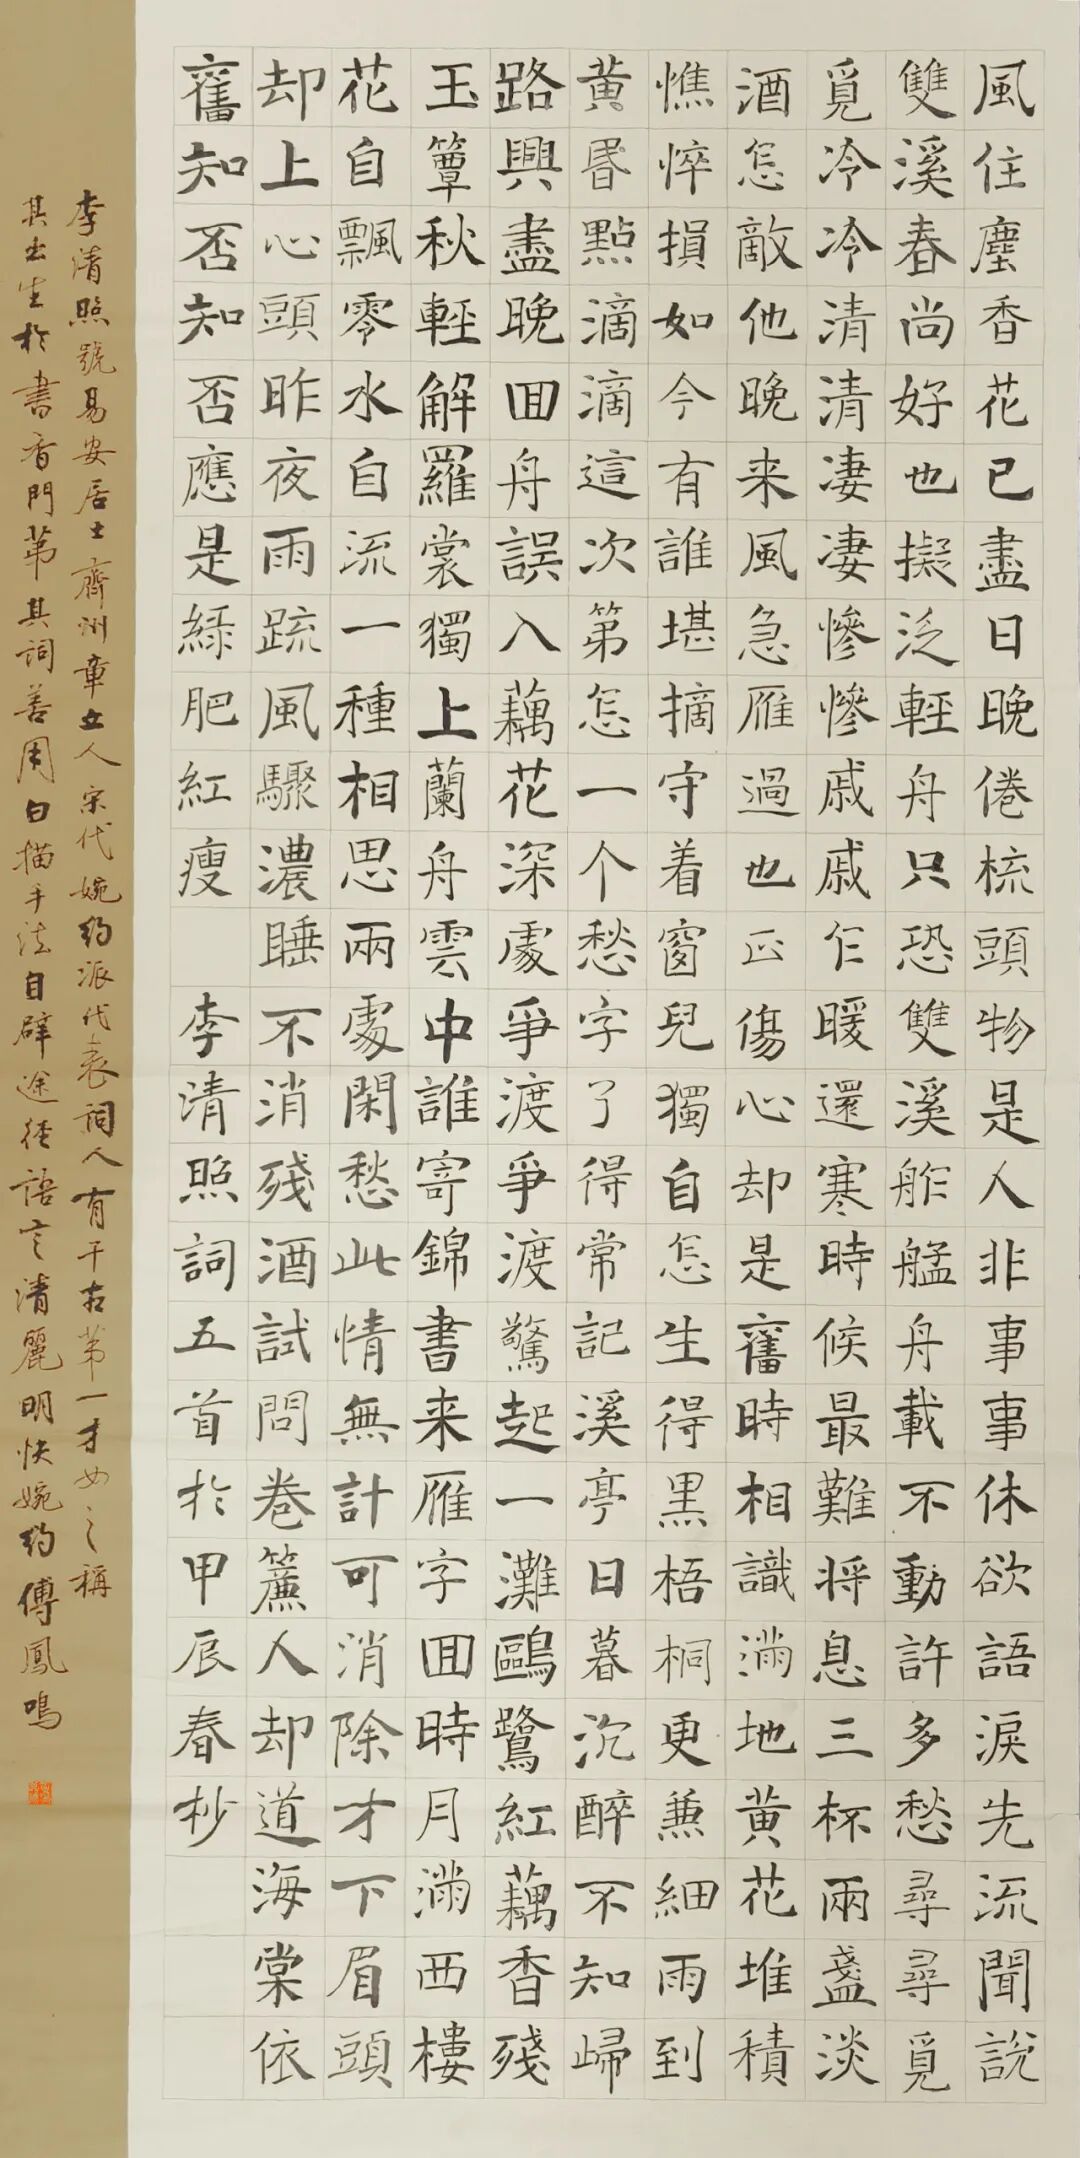 風住塵香花已盡日晚倦梳頭物是人非事事休欲語淚先流聞說
雙溪春尚好也擬泛輕舟只恐雙溪舴艋舟載不動許多愁尋尋覓
覓冷冷清清凄凄慘慘戚戚乍暖還寒時候最難將息三杯兩盞淡
酒怎敵他晚来風急雁過也正傷心却是舊時相識滿地黄花堆積
憔悴損如今有誰堪摘守着窗兒獨自怎生得黑梧桐更兼細雨到
黄昬點滴滴這次第怎一个愁字了得常記溪亭日暮沉醉不知歸
路興盡晚回舟誤入藕花深處爭渡爭渡驚起一灘鷗鷺紅藕香殘
玉簟秋輕解羅裳獨上蘭舟雲中誰寄錦書来雁字回時月滿西樓
花自飄零水自流一種相思兩處閑愁此情無計可消除才下眉頭
却上心頭昨夜雨疏風驟濃睡不消殘酒試問卷簾人却道海棠依
舊知否知否應是綠肥紅瘦 李清照詞五首於甲辰春杪
李清照號易安居士齊州章丘人宋代婉約派代表詞人有千古第一才女之稱
其出生於書香門第其詞善用白描手法自辟途徑語言清麗明快婉約傅鳳鳴